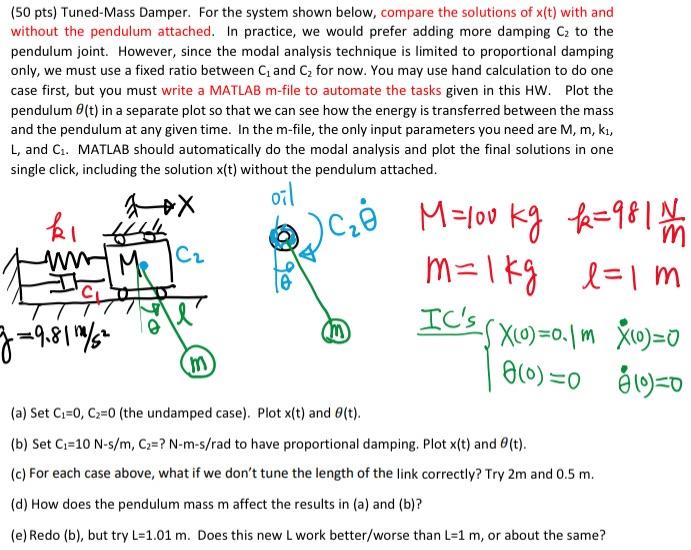 (50 pts) Tuned-Mass Damper. For the system shown below, compare the solutions of x(t) with and
without the pendulum attached. In practice, we would prefer adding more damping C₂ to the
pendulum joint. However, since the modal analysis technique is limited to proportional damping
only, we must use a fixed ratio between C₁ and C₂ for now. You may use hand calculation to do one
case first, but you must write a MATLAB m-file to automate the tasks given in this HW. Plot the
pendulum θ(t) in a separate plot so that we can see how the energy is transferred between the mass
and the pendulum at any given time. In the m-file, the only input parameters you need are M, m, k₁,
L, and C₁. MATLAB should automatically do the modal analysis and plot the final solutions in one
single click, including the solution x(t) without the pendulum attached.
X
k1
M
C2
C1
θ
l
m
g=9.81 m/s²
oil
C2θ̇
θ
m
M=100 kg k=981 N/m
m=1 kg l=1 m
IC's
X(0)=0.1 m Ẋ(0)=0
θ(0)=0 θ̇(0)=0
(a) Set C₁=0, C₂=0 (the undamped case). Plot x(t) and θ(t).
(b) Set C₁=10 N-s/m, C₂=? N-m-s/rad to have proportional damping. Plot x(t) and θ(t).
(c) For each case above, what if we don't tune the length of the link correctly? Try 2m and 0.5 m.
(d) How does the pendulum mass m affect the results in (a) and (b)?
(e) Redo (b), but try L=1.01 m. Does this new L work better/worse than L=1 m, or about the same?